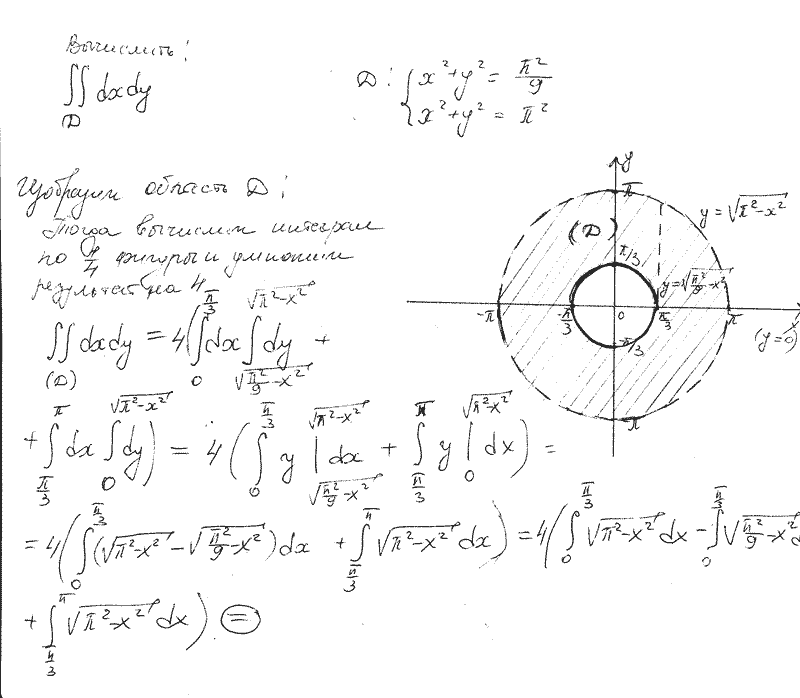 Вычислить:
∬_D dxdy    D: { x²+y² = π²/9
x²+y² = π²
Изобразим область D:
Тогда вычислим интеграл
по 1/4 фигуры и умножим
результат на 4
y
π
y = √(π²-x²)
(D)
π/3
y = √(π²/9-x²)
-π  -π/3  0  π/3  π  x
(y=0)
-π/3
π
∬_(D) dxdy = 4(∫_0^{π/3} dx ∫_{√(π²/9-x²)}^{√(π²-x²)} dy +
+ ∫_{π/3}^{π} dx ∫_0^{√(π²-x²)} dy) = 4(∫_0^{π/3} y |_{√(π²/9-x²)}^{√(π²-x²)} dx + ∫_{π/3}^{π} y |_0^{√(π²-x²)} dx) =
= 4(∫_0^{π/3} (√(π²-x²) - √(π²/9-x²)) dx + ∫_{π/3}^{π} √(π²-x²) dx) = 4(∫_0^{π/3} √(π²-x²) dx - ∫_0^{π/3} √(π²/9-x²) d
+ ∫_{π/3}^{π} √(π²-x²) dx) =